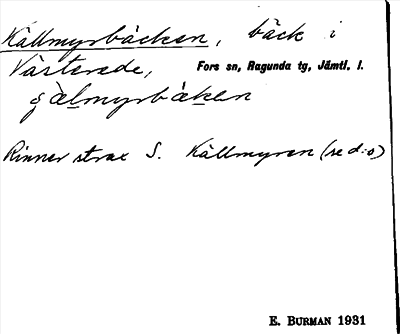 Källmyrbäcken, bäck i
Västerede, Fors sn, Ragunda tg, Jämtl. l.
Rinner strax S. Källmyren (se d:o)
E. BURMAN 1931